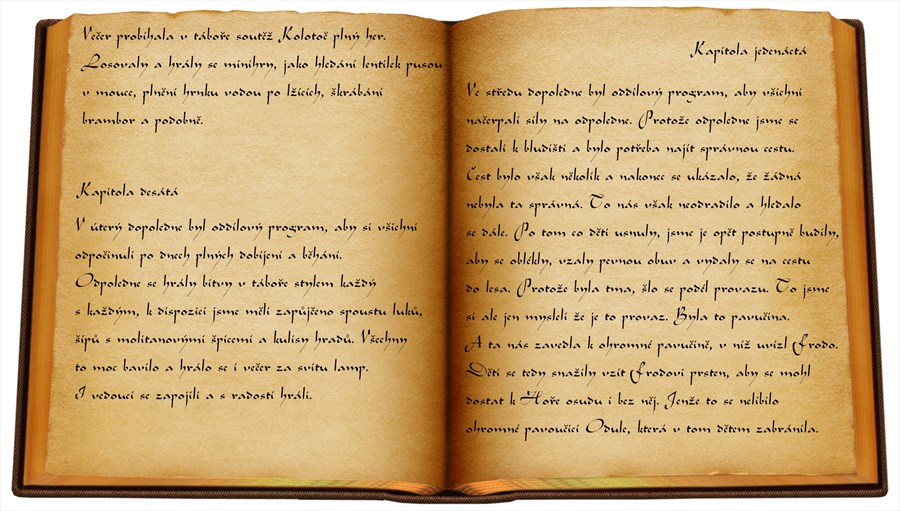 Večer probíhala v táboře soutěž Kolotoč plný her.
Losovaly a hrály se minihry, jako hledání lentilek pusou
v mouce, plnění hrnku vodou po lžících, škrábání
brambor a podobně.
Kapitola desátá
V úterý dopoledne byl oddílový program, aby si všichni
odpočinuli po dnech plných dobíjení a běhání.
Odpoledne se hrály bitvy v táboře stylem každý
s každým, k dispozici jsme měli zapůjčeno spoustu luků,
šípů s molitanovými špicemi a kulisy hradů. Všechny
to moc bavilo a hrálo se i večer za svitu lamp.
I vedoucí se zapojili a s radostí hráli.
Kapitola jedenáctá
Ve středu dopoledne byl oddílový program, aby všichni
načerpali síly na odpoledne. Protože odpoledne jsme se
dostali k bludišti a bylo potřeba najít správnou cestu.
Cest bylo však několik a nakonec se ukázalo, že žádná
nebyla ta správná. To nás však neodradilo a hledalo
se dále. Po tom co děti usnuly, jsme je opět postupně budily,
aby se oblékly, vzaly pevnou obuv a vydaly se na cestu
do lesa. Protože byla tma, šlo se podél provazu. To jsme
si ale jen mysleli že je to provaz. Byla to pavučina.
A ta nás zavedla k ohromné pavučině, v níž uvízl Frodo.
Děti se tedy snažily vzít Frodovi prsten, aby se mohl
dostat k Hoře osudu i bez něj. Jenže to se nelíbilo
ohromné pavoučici Odule, která v tom dětem zabránila.